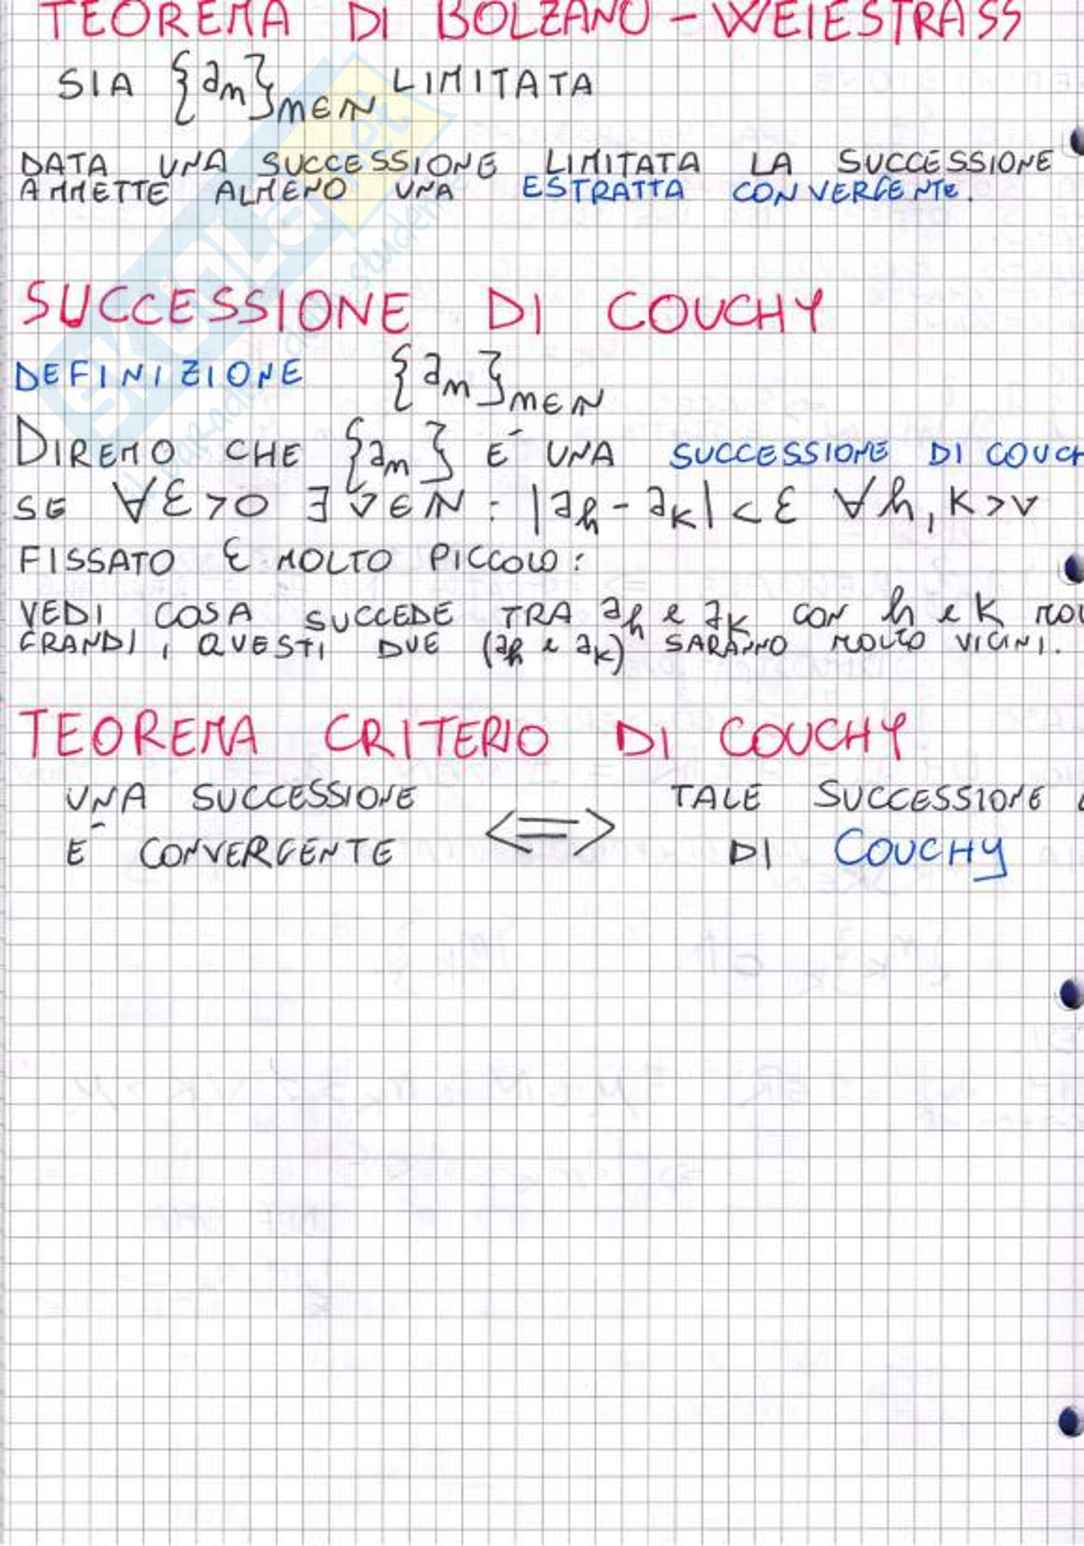 TEOREMA DI BOLZANO-WEIESTRASS
SIA {an}n∈N LIMITATA
DATA UNA SUCCESSIONE LIMITATA LA SUCCESSIONE
AMMETTE ALMENO UNA ESTRATTA CONVERGENTE.
SUCCESSIONE DI COUCHY
DEFINIZIONE {an}n∈N
DIREMO CHE {an} É UNA SUCCESSIONE DI COUCH
SE ∀ε>0 ∃ν∈N : |ah-ak|<ε ∀h,k>ν
FISSATO ε MOLTO PICCOLO:
VEDI COSA SUCCEDE TRA ah e ak CON h e k MOL
GRANDI, QUESTI DUE (ah e ak) SARANNO MOLTO VICINI.
TEOREMA CRITERIO DI COUCHY
UNA SUCCESSIONE
É CONVERGENTE
<=>
TALE SUCCESSIONE
DI COUCHY